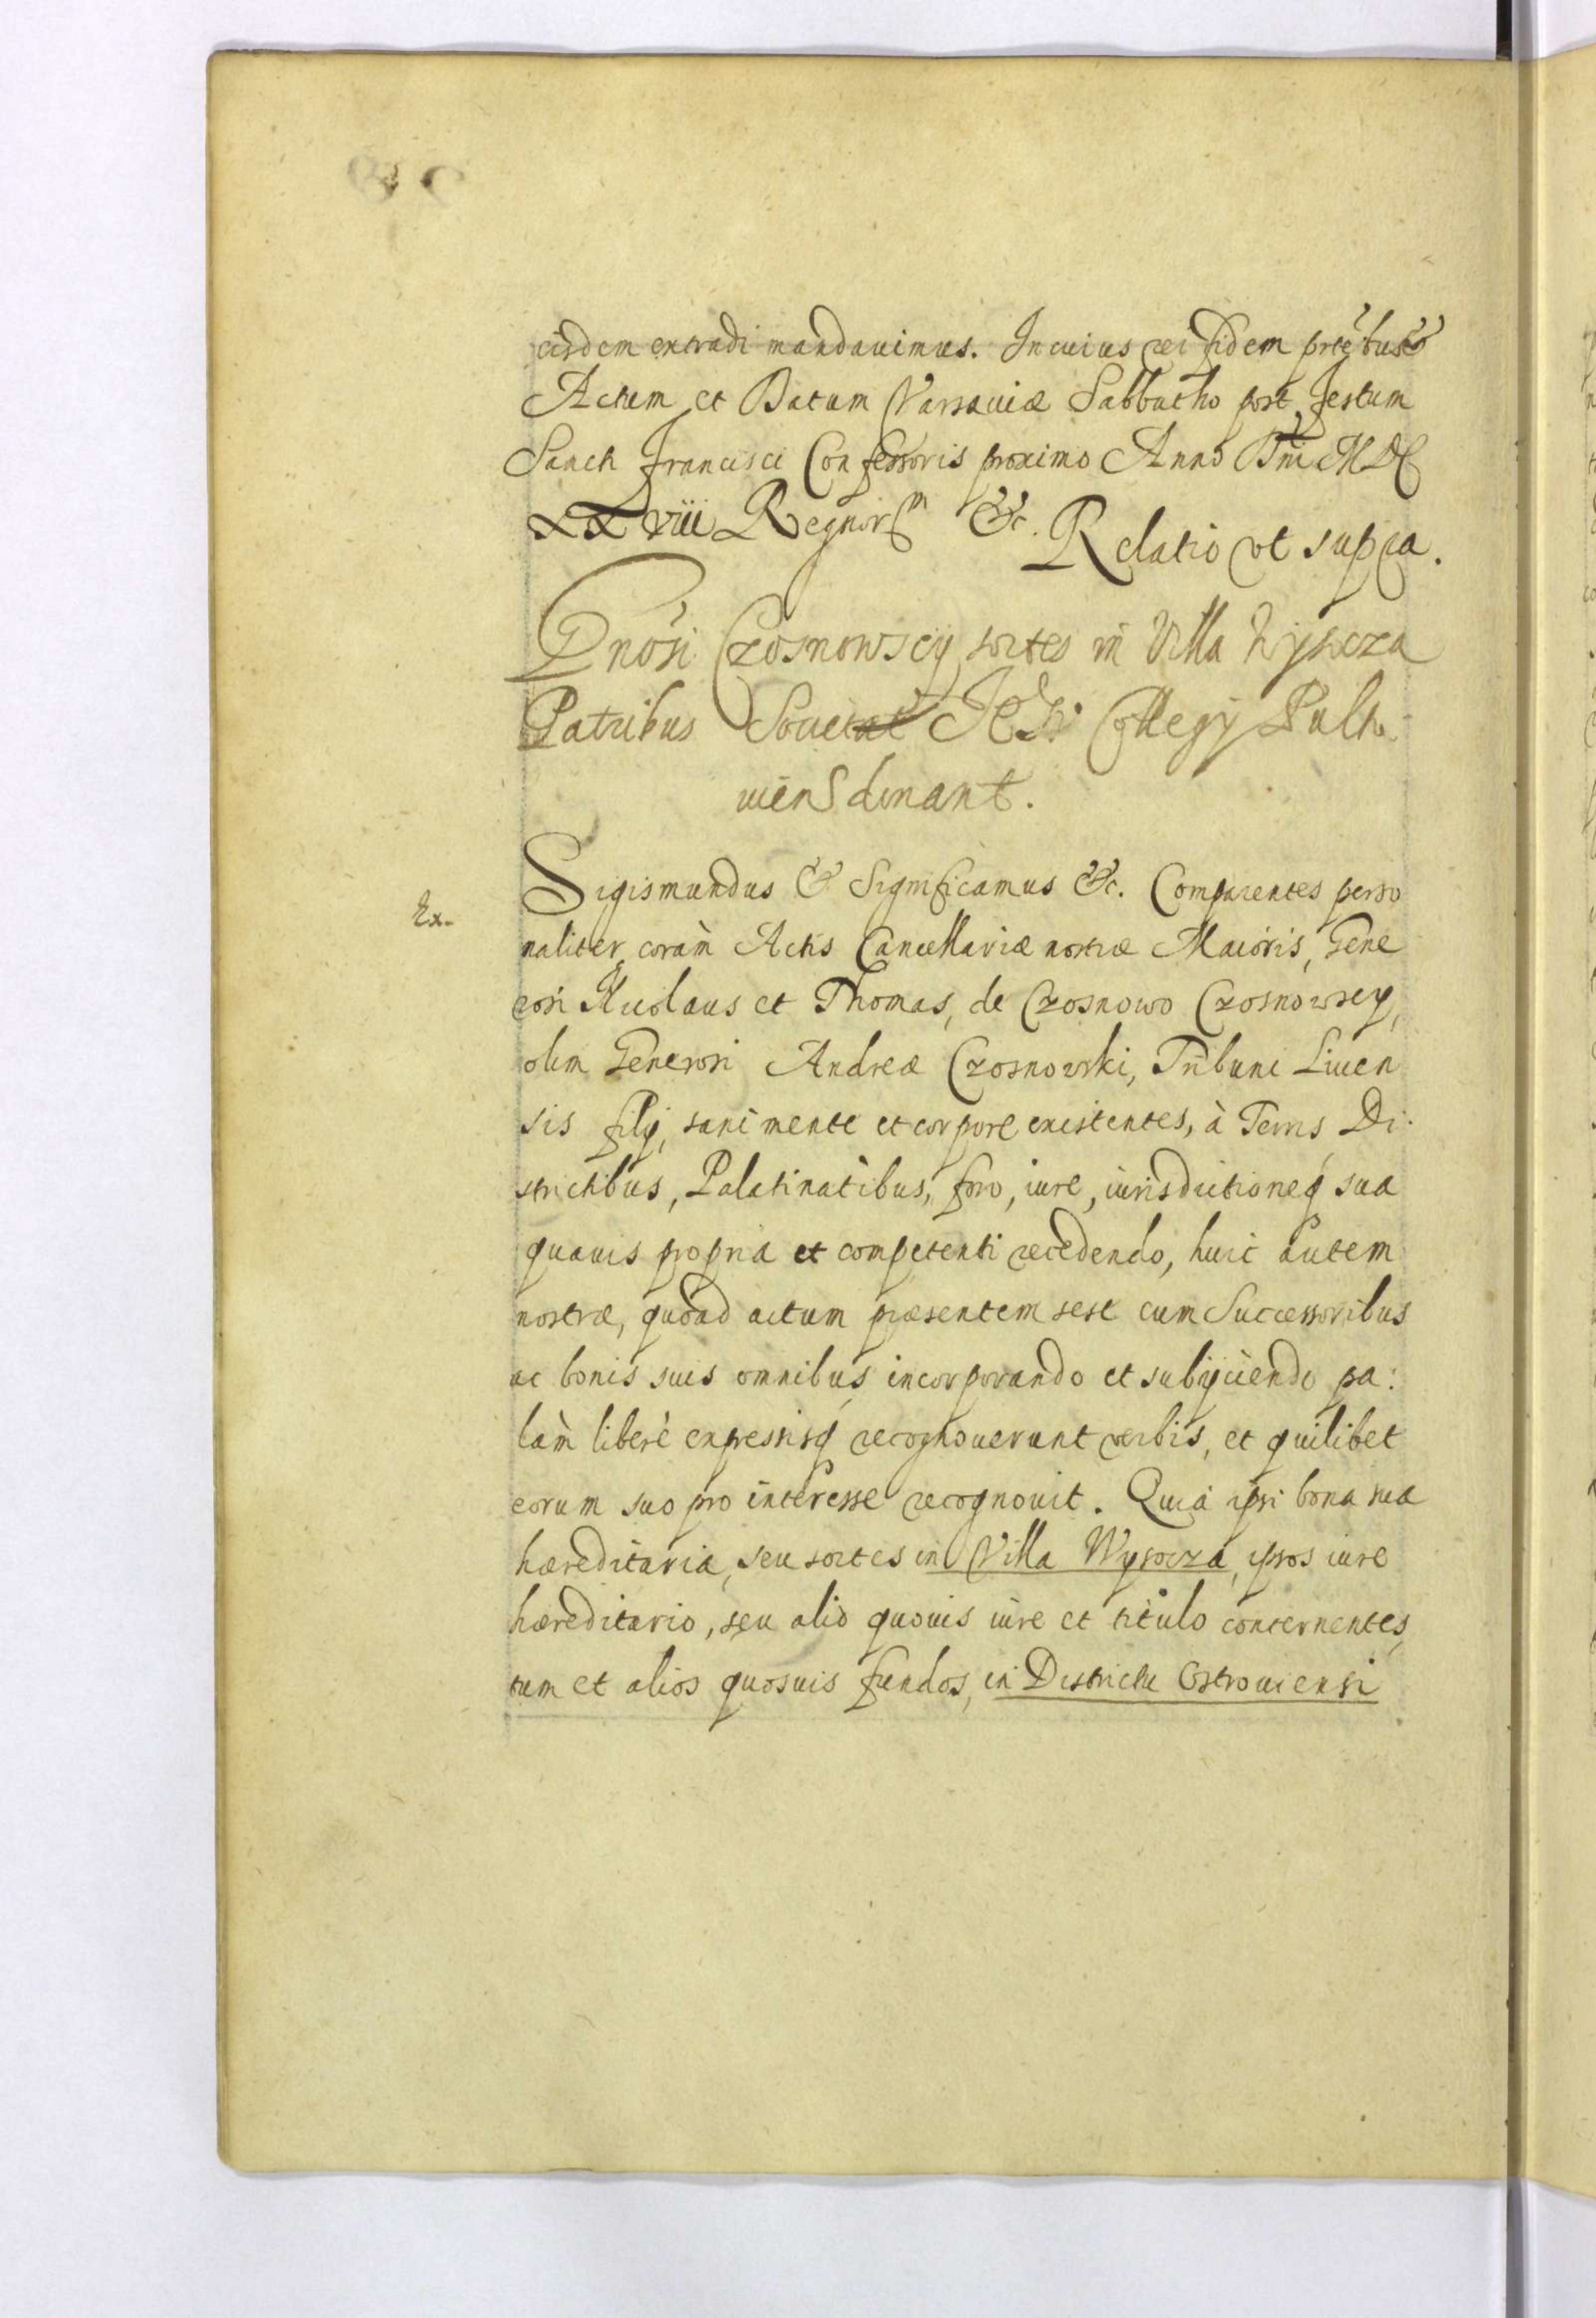 eisdem extradi mandauimus. In cuius rei fidem pñtibus &
Actum et Datum Varsauiæ Sabbatho post Festum
Sancti Francisci Confessoris proximo Anno Dni MDC
XX viii Regnorum &c. Relatio vt supra.
Gnõsi Czosnowscÿ sortes in Villa Wysocza
Patribus Societat IESV Collegÿ Pulto
uiens donant.
Ex.
Sigismundus & Significamus &c. Comparentes perso
naliter coràm Actis Cancellariæ nostræ Maioris, Gene
rosi Nicolaus et Thomas, de Czosnowo Czosnowscy,
olim Generosi Andreæ Czosnowski, Tribuni Liuen
sis filÿ, sani mente et corpore existentes, à Terris Di-
strictibus, Palatinatibus, foro, iure, iurisdictioneq́ sua
quauis propria et competenti recedendo, huic autem
nostræ, quoad actum præsentem sese cum Successoribus
ac bonis suis omnibus incorporando et subÿciendo pa:
làm liberè expressisq́ recognouerunt verbis, et quilibet
eorum suo pro interesse recognouit. Quia ipsi bona sua
hæreditaria, seu sortes in Villa Wysocza, ipsos iure
hæreditario, seu alio quouis iure et titulo concernentes,
tum et alios quosuis fundos, in Districtu Ostrouiensi